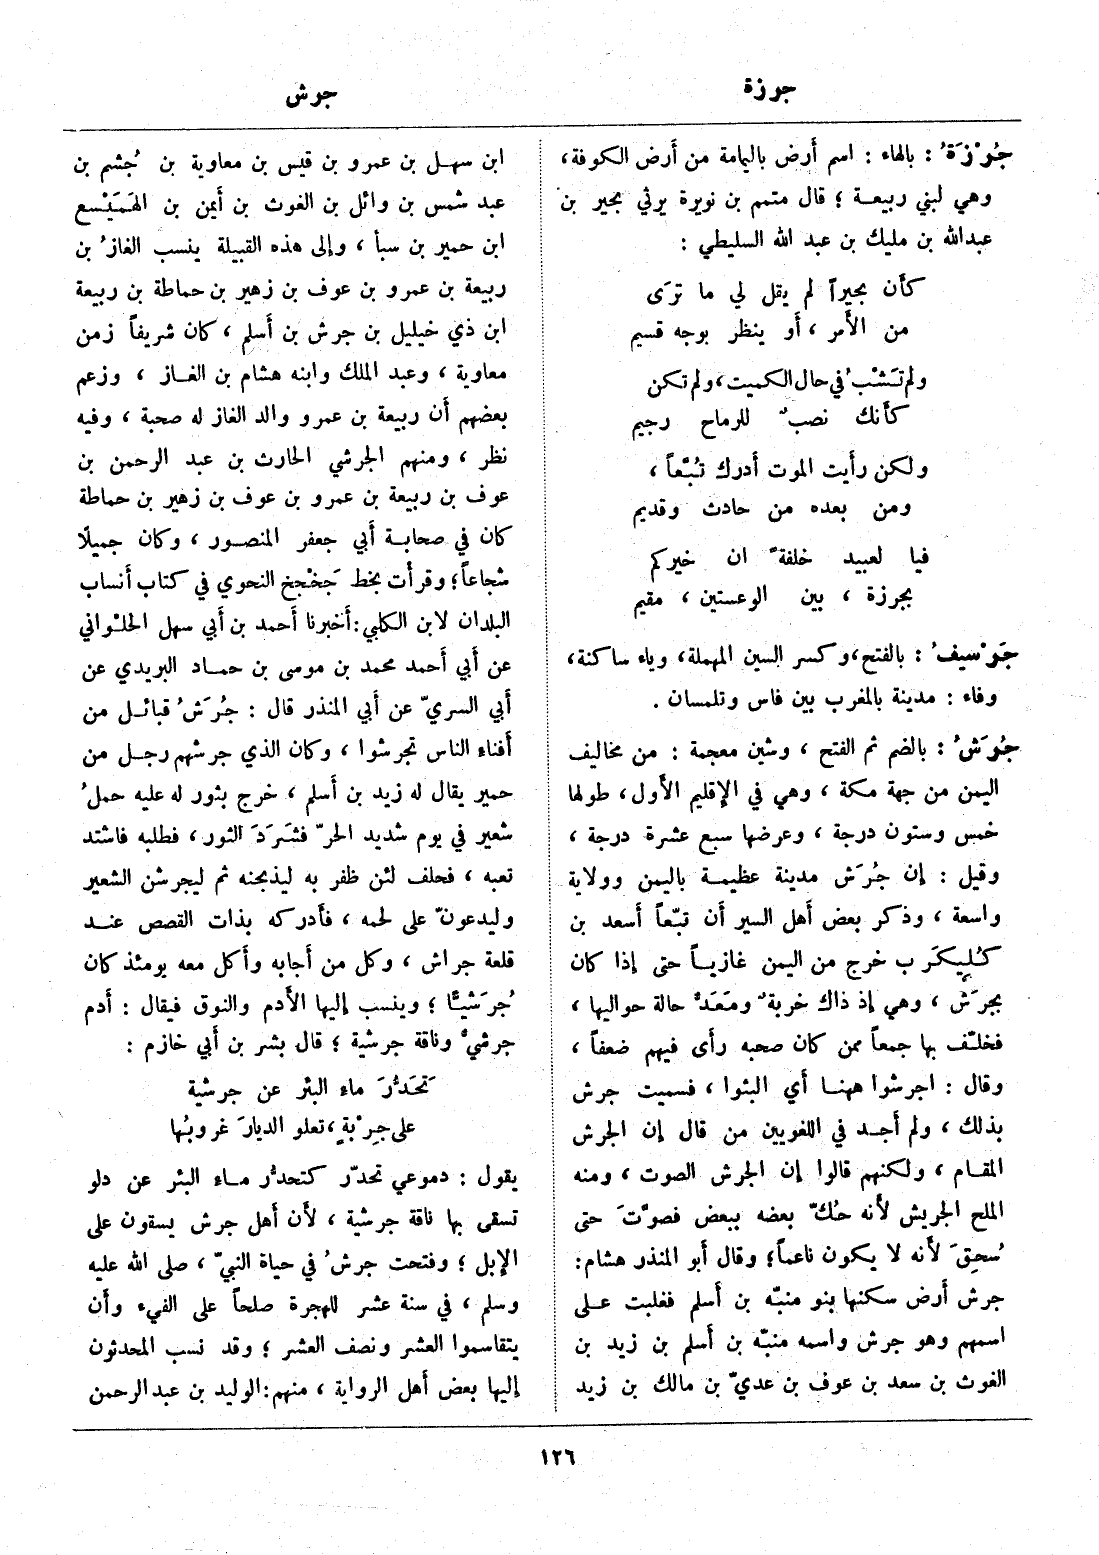 جرزة
جرش
جُرْزَةُ : بالهاء : اسم أرض باليمامة من أرض الكوفة،
وهي لبني ربيعة ؛ قال متمم بن نويرة يرثي بجير بن
عبدالله بن مليك بن عبد الله السليطي :
كأن بجيراً لم يقل لي ما ترَى
من الأَمر ، أَو ينظر بوجه قسيم
ولم تَشْبُ في حال الكميت، ولم تكن
كأَنك نصبٌ للرماح رجيم
ولكن رأيت الموت أدرك تُبّعاً ،
ومن بعده من حادث وقديم
فيا لعبيد خلفةً ان خيركم
بجرزة ، بين الوعستين ، مقيم
جَرْسيفُ : بالفتح، وكسر السين المهملة، وياء ساكنة،
وفاء : مدينة بالمغرب بين فاس وتلمسان .
جُرَشُ : بالضم ثم الفتح ، وشين معجمة : من مخاليف
اليمن من جهة مكة ، وهي في الإقليم الأول، طولها
خمس وستون درجة ، وعرضها سبع عشرة درجة ،
وقيل : إن جُرَش مدينة عظيمة باليمن وولاية
واسعة ، وذكر بعض أهل السير أن تبّعاً أسعد بن
كُليكَرِب خرج من اليمن غازيـاً حتى إذا كان
بجرَش ، وهي إذ ذاك خربةٌ ومَعَدٌّ حالة حواليها ،
فخلّف بها جمعاً ممن كان صحبه رأى فيهم ضعفاً ،
وقال : اجرشوا ههنـا أي البثوا ، فسميت جرش
بذلك ، ولم أجد في اللغويين من قال إن الجرش
المقام ، ولكنهم قالوا إن الجرش الصوت ، ومنه
الملح الجريش لأنه حُكّ بعضه ببعض فصوّتَ حتى
سُحِقَ لأنه لا يكون ناعماً؛ وقال أبو المنذر هشام:
جرش أرض سكنها بنو منبّه بن أسلم فغلبت على
اسمهم وهو جرش واسمه منبّه بن أسلم بن زيد بن
الغوث بن سعد بن عوف بن عديّ بن مالك بن زيد
ابن سهل بن عمرو بن قيس بن معاوية بن جُشم بن
عبد شمس بن وائل بن الغوث بن أيمن بن الهَمَيْسع
ابن حمير بن سبأ ، وإلى هذه القبيلة ينسب الغازُ بن
ربيعة بن عمرو بن عوف بن زهير بن حماطة بن ربيعة
ابن ذي خيليل بن جرش بن أسلم ، كان شريفاً زمن
معاوية ، وعبد الملك وابنه هشام بن الغـاز ، وزعم
بعضهم أن ربيعة بن عمرو والد الغاز له صحبة ، وفيه
نظر ، ومنهم الجرشي الحارث بن عبد الرحمن بن
عوف بن ربيعة بن عمرو بن عوف بن زهير بن حماطة
كان في صحابة أبي جعفر المنصور ، وكان جميلًا
شجاعاً؛ وقرأت بخط جَخْجخ النحوي في كتاب أنساب
البلدان لابن الكلبي: أخبرنا أحمد بن أبي سهل الحلْواني
عن أبي أحمد محمد بن موسى بن حماد البريدي عن
أبي السريّ عن أبي المنذر قال : جُرَشُ قبائل من
أفناء الناس تجرشوا ، وكان الذي جرشهم رجل من
حمير يقال له زيد بن أسلم ، خرج بثور له عليه حملُ
شعير في يوم شديد الحرّ فشَرَدَ الثور، فطلبه فاشتد
تعبه ، فحلف لئن ظفر به ليذبحنه ثم ليجرشن الشعير
وليدعونّ على لحمه ، فأدركه بذات القصص عند
قلعة جراش ، وكل من أجابه وأكل معه يومئذ كان
جُرَشيًّا ؛ وينسب إليها الأدم والنوق فيقال : أدم
جرشيٌّ وناقة جرشية ؛ قال بشر بن أبي خازم :
تَحَدُّرَ ماء البئر عن جرشية
على جِرْبةٍ، تعلو الديارَ غروبُها
يقول : دموعي تحدّر كتحدُّر ماء البئر عن دلو
تسقى بها ناقة جرشية ، لأن أهل جرش يسقون على
الإبل ؛ وفتحت جرشُ في حياة النبيّ ، صلى الله عليه
وسلم ، في سنة عشر للهجرة صلحاً على الفيء وأن
يتقاسموا العشر ونصف العشر ؛ وقد نسب المحدثون
إليها بعض أهل الرواية ، منهم: الوليد بن عبد الرحمن
١٢٦